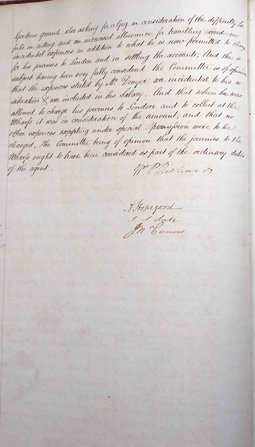 ground also asking for a Gig in consideration of the difficulty he
is in riding and an increased allowance for travelling and
incidental expences in addition to what he is now permitted to charge
for his journies to London and in settling the accounts, and the
subject having been very fully considered the Committee is of opinion
that the expences stated by Mr are incidental to his
situation & are included in his Salary. And that when he was
allowed to charge his journies to London and to collect at the
Wharfs it was in consideration of the amount, and that no
other expences excepting under special permission were to be
charged, the Committee being of opinion that the journies to the
Wharfs ought to have been considered as part of the ordinary duties
of the agent.
Wm
T. Hopegood